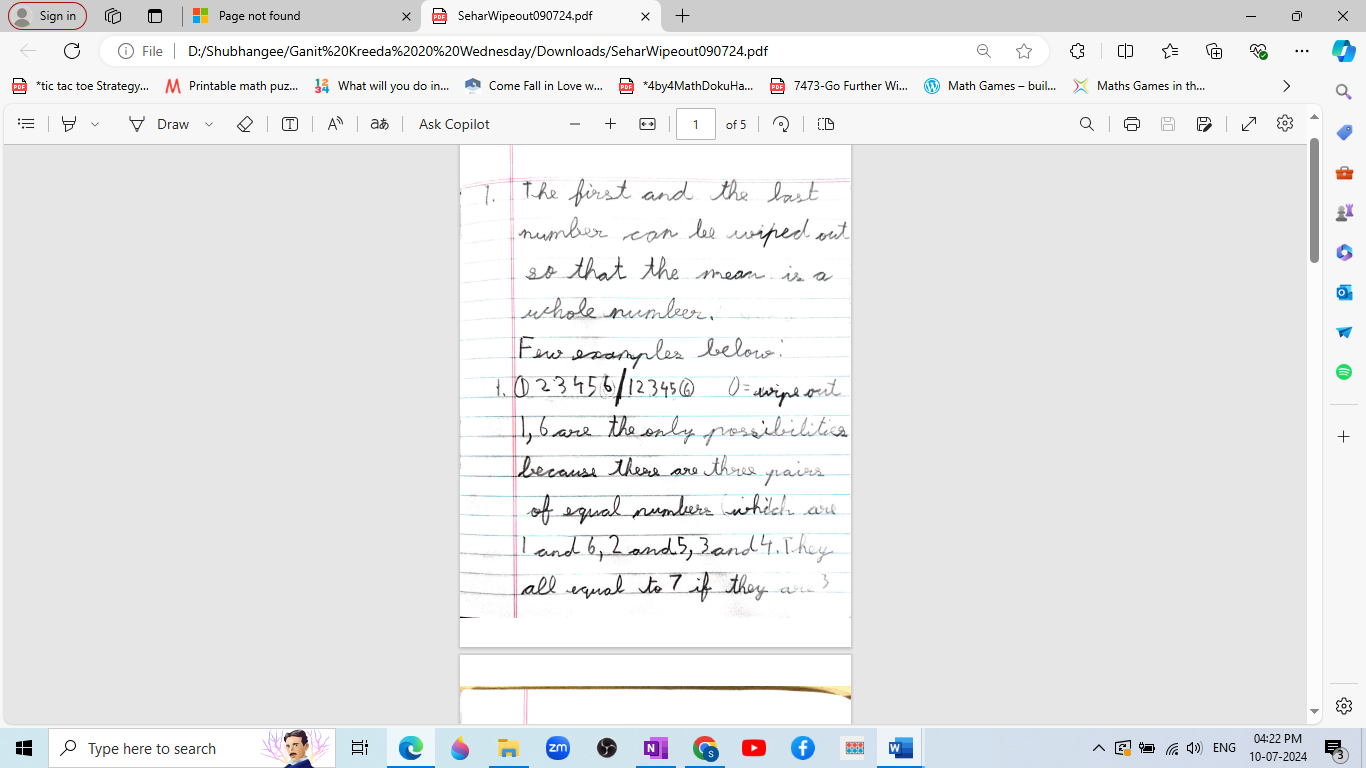 Sign in
Page not found
SeharWipeout090724.pdf
File
D:/Shubhangee/Ganit%20Kreeda%2020%20Wednesday/Downloads/SeharWipeout090724.pdf
*tic tac toe Strategy...
Printable math puz...
What will you do in...
Come Fall in Love w...
*4by4MathDokuHa...
7473-Go Further Wi...
Math Games – buil...
Maths Games in th...
Draw
Ask Copilot
1 of 5
1. The first and the last
number can be wiped out
so that the mean is a
whole number.
Few examples below:
1. ① 2 3 4 5 6 / 1 2 3 4 5 ⑥ () = wipe out
1, 6 are the only possibilities
because there are three pairs
of equal numbers which are
1 and 6, 2 and 5, 3 and 4. They
all equal to 7 if they are 3
Type here to search
ENG
04:22 PM
10-07-2024
3